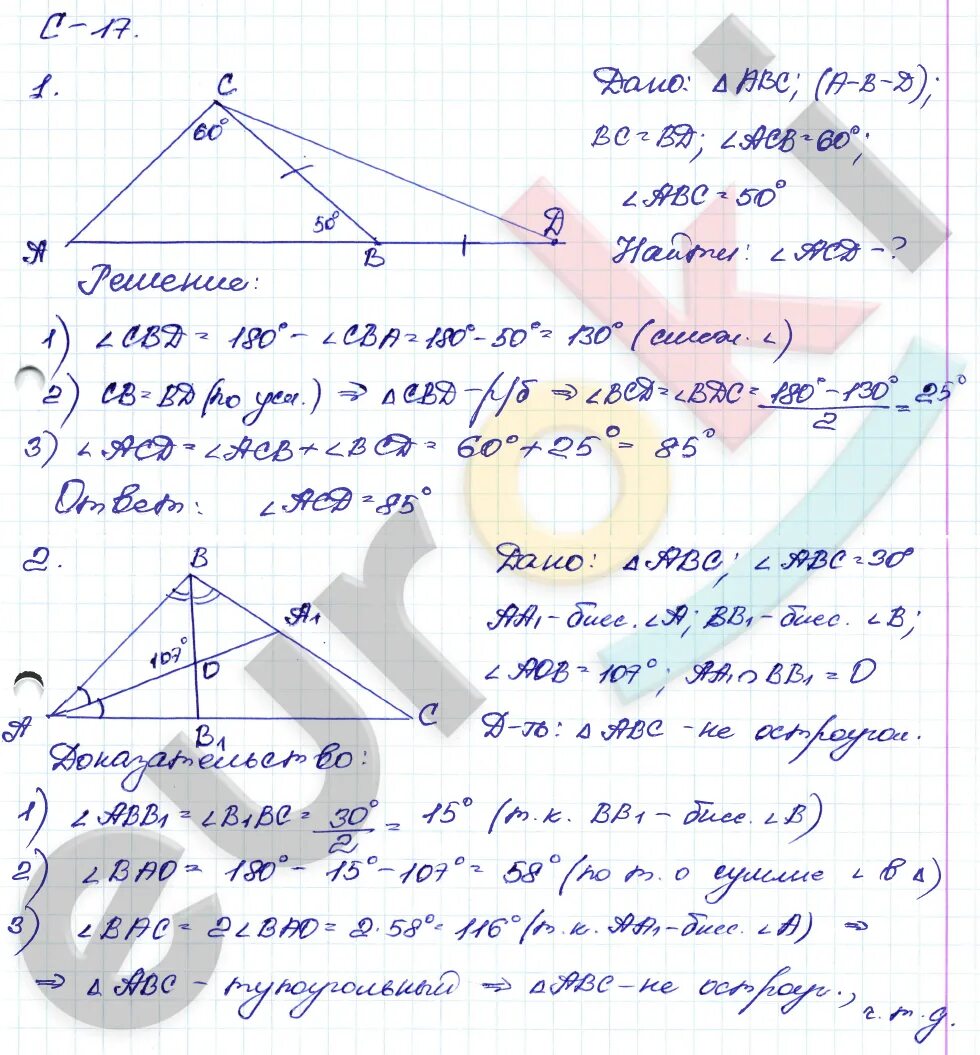 С-17.
1.
C
60°
50°
A
B
D
Дано: △ABC; (A-B-D);
BC=BD; ∠ACB=60°;
∠ABC=50°
Найти: ∠ACD-?
Решение:
1) ∠CBD = 180° - ∠CBA = 180° - 50° = 130° (смеж. ∠)
2) CB=BD (по усл.) ⇒ △CBD - р/б ⇒ ∠BCD=∠BDC= (180°-130°)/2 = 25°
3) ∠ACD = ∠ACB + ∠BCD = 60° + 25° = 85°
Ответ: ∠ACD = 85°
2.
B
A₁
107°
O
A
B₁
C
Дано: △ABC; ∠ABC=30°
AA₁-бисс. ∠A; BB₁-бисс. ∠B;
∠AOB=107°; AA₁∩BB₁=O
Д-ть: △ABC - не остроугол.
Доказательство:
1) ∠ABB₁ = ∠B₁BC = 30°/2 = 15° (т.к. BB₁ - бисс. ∠B)
2) ∠BAO = 180° - 15° - 107° = 58° (по т. о сумме ∠ в △)
3) ∠BAC = 2∠BAO = 2·58° = 116° (т.к. AA₁-бисс. ∠A) ⇒
⇒ △ABC - тупоугольный ⇒ △ABC - не остроуг., ч.т.д.
euroki